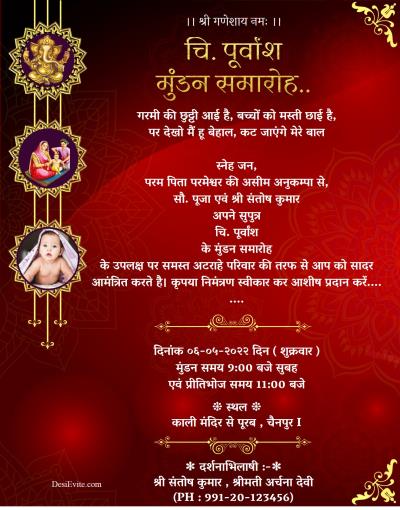 ।। श्री गणेशाय नमः ।।
चि. पूर्वांश
मुंडन समारोह..
गरमी की छुट्टी आई है, बच्चों को मस्ती छाई है,
पर देखो मैं हू बेहाल, कट जाएंगे मेरे बाल
स्नेह जन,
परम पिता परमेश्वर की असीम अनुकम्पा से,
सौ. पूजा एवं श्री संतोष कुमार
अपने सुपुत्र
चि. पूर्वांश
के मुंडन समारोह
के उपलक्ष पर समस्त अटराहे परिवार की तरफ से आप को सादर
आमंत्रित करते है। कृपया निमंत्रण स्वीकार कर आशीष प्रदान करें....
....
दिनांक ०६-०५-२०२२ दिन ( शुक्रवार )
मुंडन समय 9:00 बजे सुबह
एवं प्रीतिभोज समय 11:00 बजे
❉ स्थल ❉
काली मंदिर से पूरब , चैनपुर I
✻ दर्शनाभिलाषी :-✻
श्री संतोष कुमार , श्रीमती अर्चना देवी
(PH : 991-20-123456)
DesiEvite.com